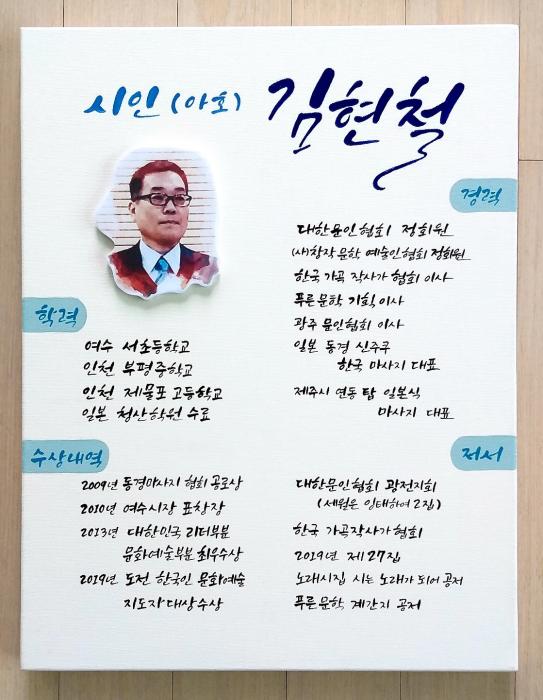 시인 (아호) 김현철
경력
대한문인협회 정회원
(사)창작문학 예술인협회 정회원
한국 가곡 작사가 협회 이사
푸른문학 기획이사
광주 문인협회 이사
일본 동경 신주쿠
한국 마사지 대표
제주시 연동 탑 일본식
마사지 대표
학력
여수 서초등학교
인천 부평중학교
인천 제물포 고등학교
일본 청산학원 수료
수상내역
2009년 동경마사지 협회 공로상
2010년 여수시장 표창장
2013년 대한민국 리더부분
문화예술부분 최우수상
2019년 도전 한국인 문화예술
지도자대상수상
저서
대한문인협회 광전지회
(세월은 잉태하여 2집)
한국 가곡작사가협회
2019년 제27집
노래시집 시는 노래가 되어 공저
푸른문학 계간지 공저